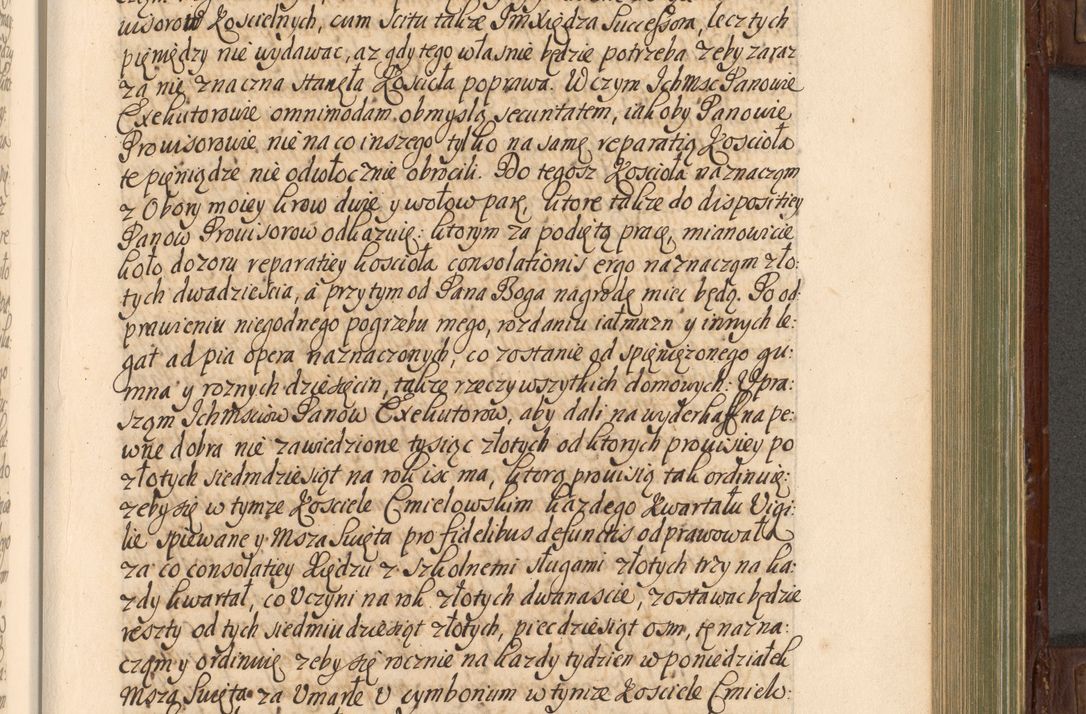 wisorow Kościelnych, cum scitu także Jm Xiędza successora, lecz tych
pięniędzy nie wydawac, az gdy tego własnie będzie potrzeba zeby zaraz
za nię znaczna stanęła Koscioła poprawa. W czym Ichmsc Panowie
Exekutorowie omnimodam obmyslą securitatem, iakoby Panowie
Prowisorowie nie na co inszego tylko na samę reparatią Kosciołа
te pięniądze nie odwłocznie obrocili. Do tegosz Kosciołа naznaczam
z Obory moiey krow dwie y wołow parę, ktore także do dispositiey
Panow Prowisorow odkazuię: ktorym za podiętą pracę, mianowicie
koło dozoru reparatiey koscioła consolationis ergo naznaczam zło:
tych dwadzieścia, á przytym od Pana Boga nagrodę miec będą. Po od:
prawieniu niegodnego pogrzebu mego, rozdaniu iałmazn y innych le:
gat ad pia opera naznaczonych, co zostanie od spięniężonego gu:
mna y roznych dziesięcin, także rzeczy wszytkich domowych: Upra:
szam Ichmsciow Panow Exekutorow, aby dali na wyderkaff na pe:
wne dobra nie zawiedzione tysiąc złotych od ktorych prowisiey po
złotych siedmdziesiąt na rok isc ma, ktorą prowisią tak ordinuię:
zeby się w tymze Kosciele Cmielowskim kazdego Kwartału Vigi:
lie spiewane y Msza Swięta pro fidelibus defunctis odprawowała
za co consolatiey Xiędzu z Szkolnemi sługami złotych trzy na ka:
zdy kwartał, co Uczyni na rok złotych dwanascie, zostawac będzie
reszty od tych siedmiudziesiąt złotych, piecdziesiąt osm, tę nazna:
czam y ordinuię zeby się rocznie na kazdy tydzien w poniedziałek
Msza Swięta za Umarłe v cymborium w tymze Kosciele Cmielo: